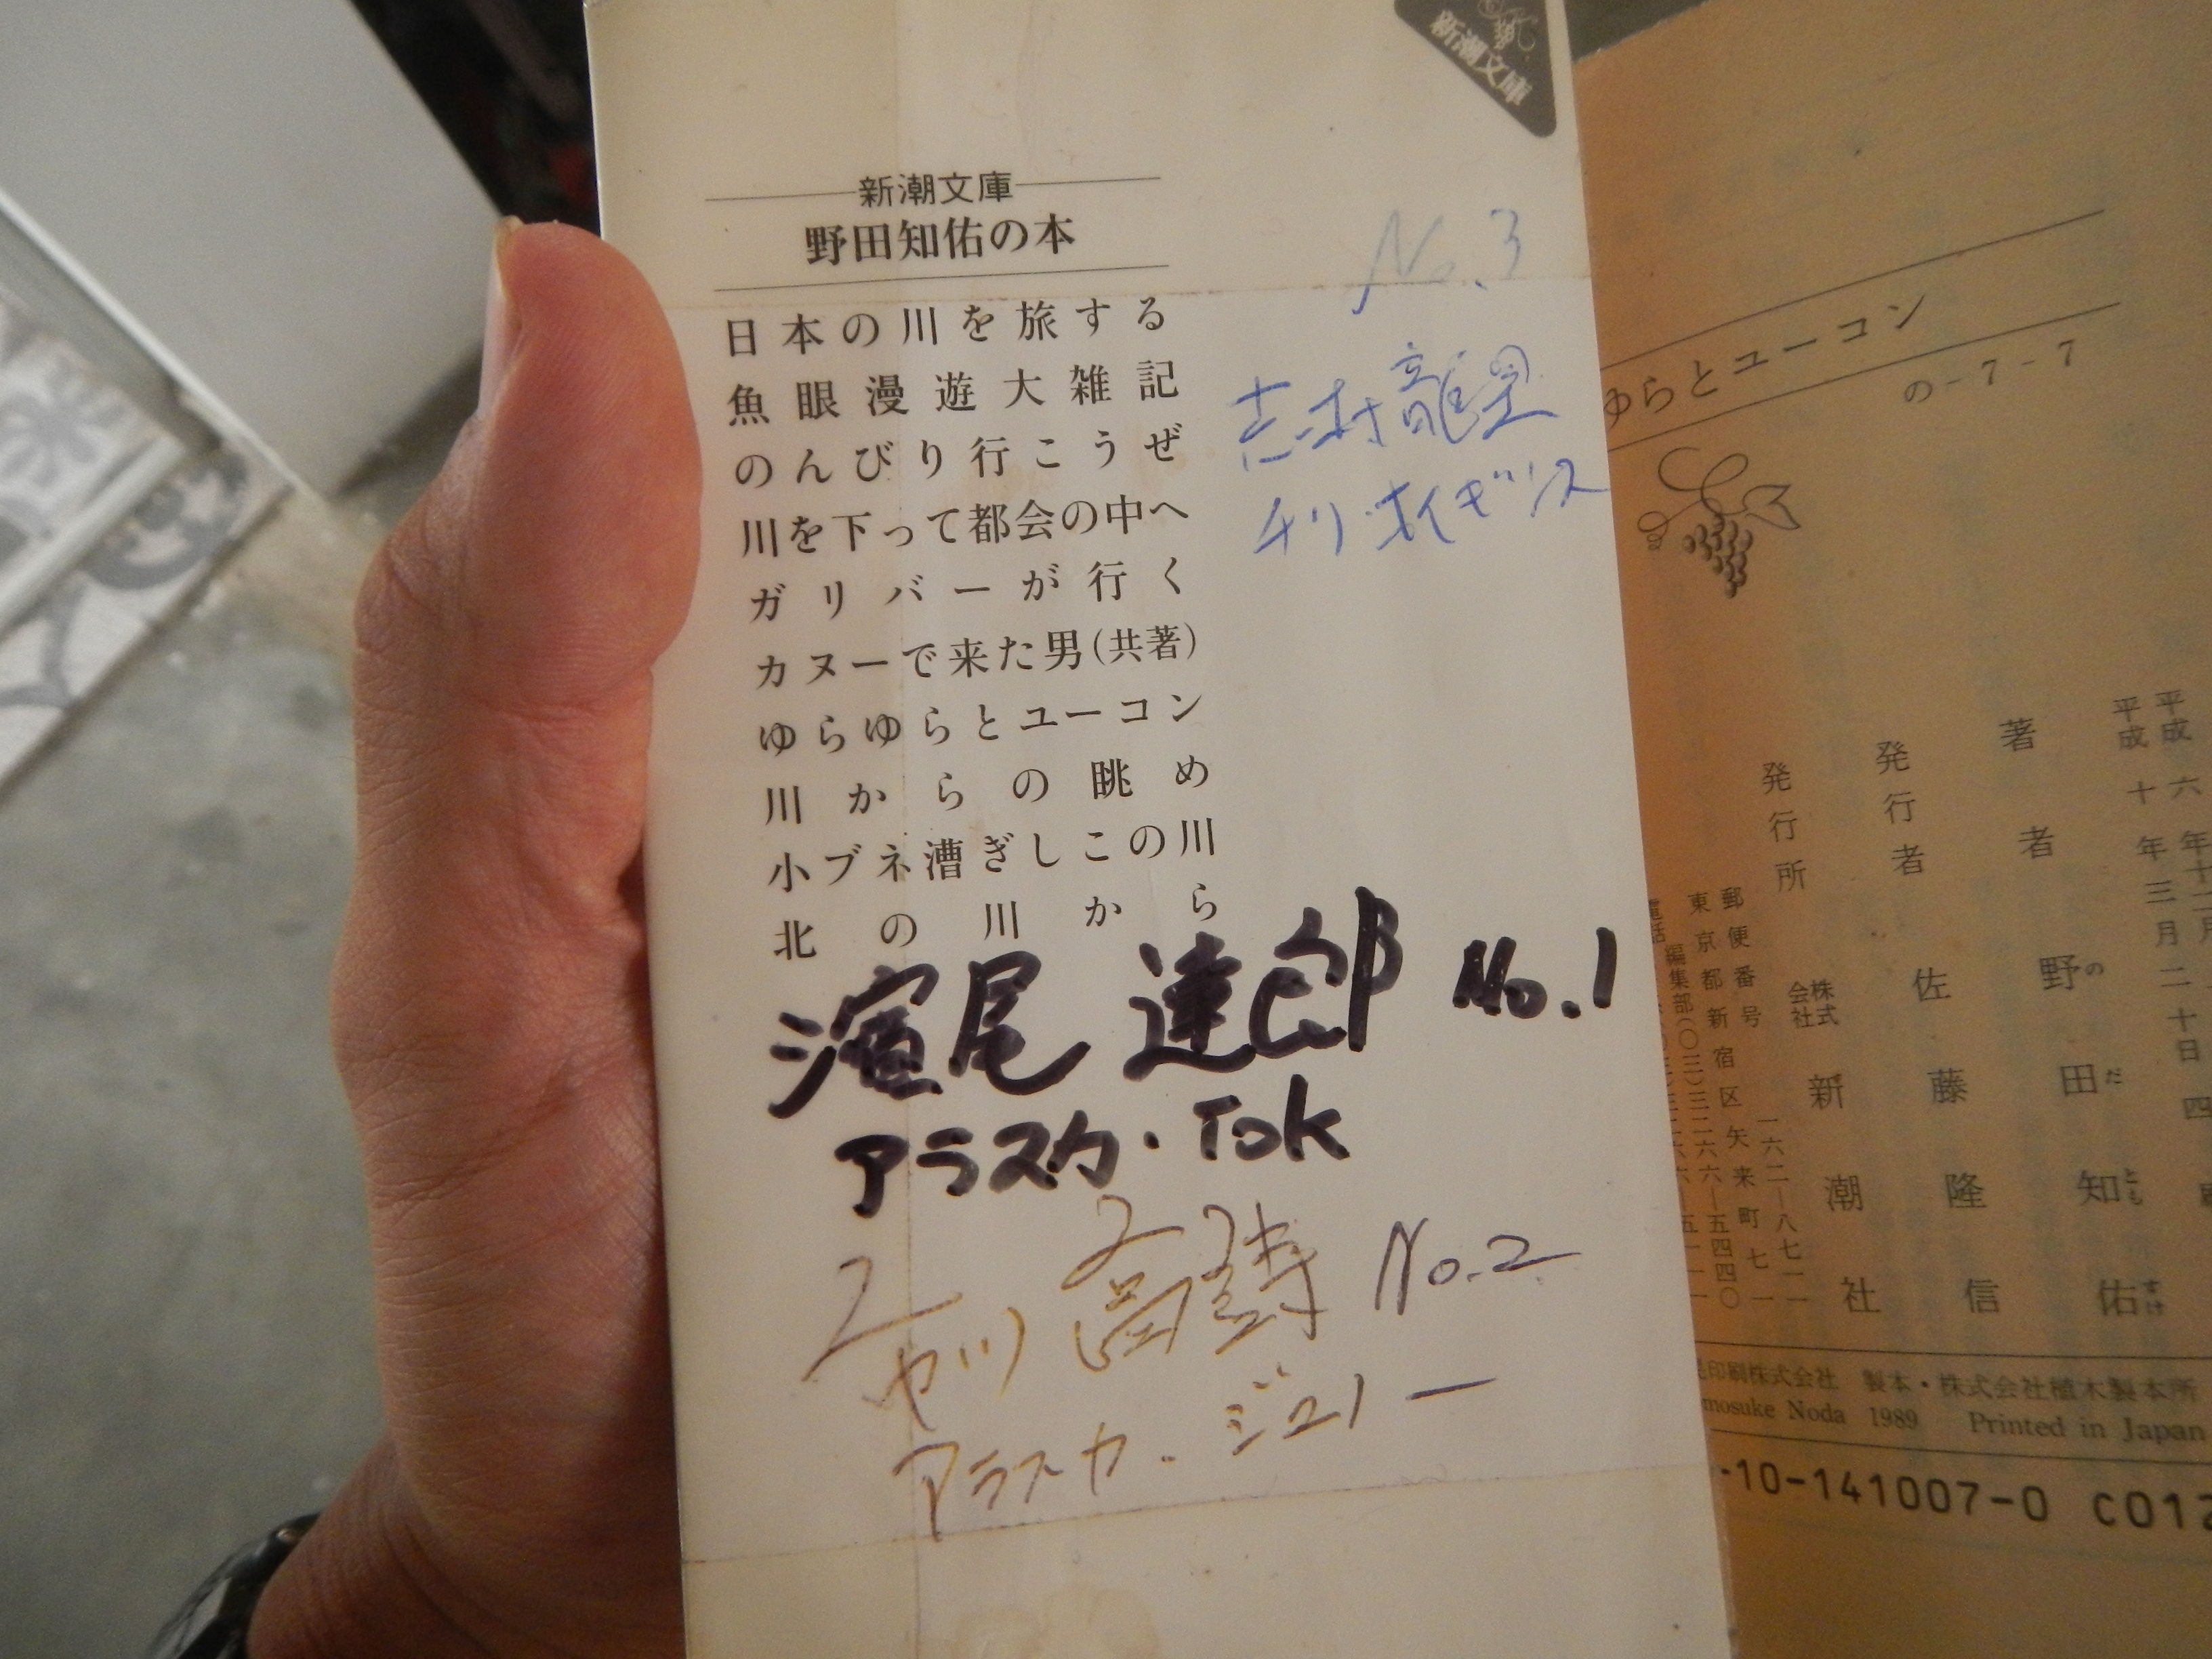 新潮文庫
新潮文庫
野田知佑の本
日本の川を旅する
魚眼漫遊大雑記
のんびり行こうぜ
川を下って都会の中へ
ガリバーが行く
カヌーで来た男(共著)
ゆらゆらとユーコン
川からの眺め
小ブネ漕ぎしこの川
北の川から
No.3
志村龍望
チリ・オイギンス
濱尾 達郎 No.1
アラスカ・Tok
No.2
アラスカ・ジュノー
ゆらとユーコン
の-7-7
平成六年十二月
平成十年三月二十日 四
著者 野田知佑
のだともすけ
発行者 佐藤隆信
発行所 株式会社 新潮社
郵便番号 一六二―八七一一
東京都新宿区矢来町七一
印刷株式会社 製本・株式会社植木製本所
mosuke Noda 1989 Printed in Japan
-10-141007-0 C012